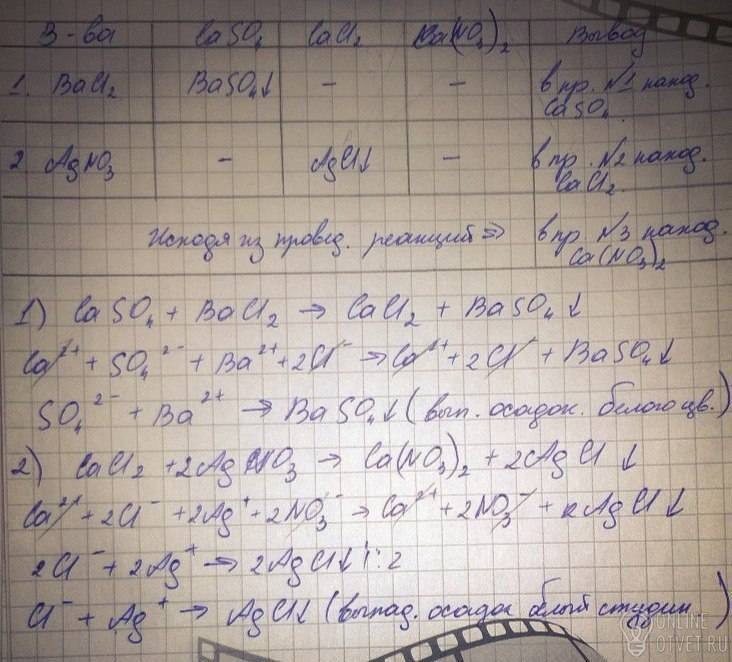 В-ва CaSO₄ CaCl₂ Ca(NO₃)₂ Вывод
1. BaCl₂ BaSO₄↓ – – в пр. №1 наход. CaSO₄
2 AgNO₃ – AgCl↓ – в пр. №2 наход. CaCl₂.
Исходя из провед. реакций ⇒ в пр. №3 наход. Ca(NO₃)₂
1) CaSO₄ + BaCl₂ → CaCl₂ + BaSO₄↓
Ca²⁺ + SO₄²⁻ + Ba²⁺ + 2Cl⁻ → Ca²⁺ + 2Cl⁻ + BaSO₄↓
SO₄²⁻ + Ba²⁺ → BaSO₄↓ (вып. осадок. белого цв.)
2) CaCl₂ + 2AgNO₃ → Ca(NO₃)₂ + 2AgCl↓
Ca²⁺ + 2Cl⁻ + 2Ag⁺ + 2NO₃⁻ → Ca²⁺ + 2NO₃⁻ + 2AgCl↓
2Cl⁻ + 2Ag⁺ → 2AgCl↓ |:2
Cl⁻ + Ag⁺ → AgCl↓ (выпад. осадок белый студин.)
ONLINE
OTVET.RU